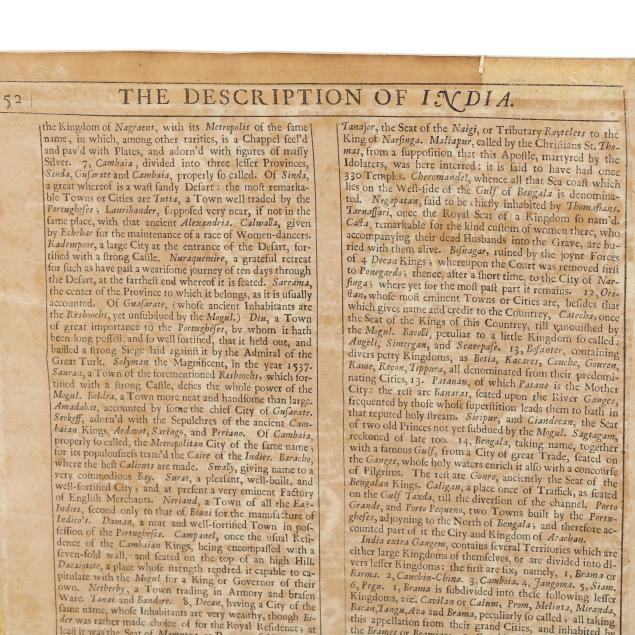 52
THE DESCRIPTION OF INDIA.
the Kingdom of Nagracut, with its Metropolis of the same
name, in which, among other rarities, is a Chappel seel'd
and pav'd with Plates, and adorn'd with figures of massy
Silver. 7, Cambaia, divided into three lesser Provinces,
Sinda, Gusarate and Cambaia, properly so called. Of Sinda,
a great whereof is a wast sandy Desart: the most remarka-
ble Towns or Cities are Tutta, a Town well traded by the
Portugheses; Laurihander, supposed very near, if not in the
same place, with that ancient Alexandria. Calwalla, given
by Echebar for the maintenance of a race of Women-dancers.
Radempoor, a large City at the entrance of the Desart, for-
tified with a strong Castle. Nuraquemire, a grateful retreat
for such as have past a wearisome journey of ten days through
the Desart, at the farthest end whereof it is seated. Sarrama,
the center of the Province to which it belongs, as it is usually
accounted. Of Gusarate, (whose ancient Inhabitants are
the Resboots, yet unsubdued by the Mogul.) Diu, a Town
of great importance to the Portugheses, by whom it hath
been long possest, and so well fortified, that it held out, and
baffled a strong Siege laid against it by the Admiral of the
Great Turk, Solyman the Magnificent, in the year 1537.
Saurau, a Town of the forementioned Resboots, which for-
tified with a strong Castle, defies the whole power of the
Mogul. Boldea, a Town more neat and handsome than large.
Amadabat, accounted by some the chief City of Gusarate.
Serkeff, adorn'd with the Sepulchres of the ancient Cam-
baian Kings, Ardovat, Saringo, and Periano. Of Cambaia,
properly so called, the Metropolitan City of the same name;
for its populousness term'd the Caire of the Indies. Barocho,
where the best Calicuts are made. Swally, giving name to a
very commodious Bay. Surat, a pleasant, well-built, and
well-fortified City; and at present a very eminent Factory
of English Merchants. Neriand, a Town of all the East-
Indies, second only to that of Biani for the manufacture of
Indico's. Daman, a neat and well-fortified Town in pos-
session of the Portugheses. Campanel, once the usual Resi-
dence of the Cambaian Kings, being encompassed with a
seven-fold wall, and seated on the top of an high Hill.
Dacaiotote, a place whose strength rendred it capable to ca-
pitulate with the Mogul for a King or Governor of their
own. Netherby, a Town trading in Armory and brasen
Ware. Tanai and Bandore. 8, Decan, having a City of the
same name, whose Inhabitants are very wealthy, though Bi-
der was rather made choice of for the Royal Residence; at
least it was the Seat of
Tanajor, the Seat of the Naigi, or Tributary Roytelets to the
King of Narsinga. Maliapur, called by the Christians St. Tho-
mas, from a supposition that this Apostle, martyred by the
Idolaters, was here interred: it is said to have had once
330 Temples. Choromandel, whence all that Sea-coast which
lies on the West-side of the Gulf of Bengala is denomina-
ted. Negapatan, said to be chiefly inhabited by Thom.istians.
Tarnassari, once the Royal Seat of a Kingdom so nam'd.
Casta, remarkable for the kind custom of women there, who
accompanying their dead Husbands into the Grave, are bu-
ried with them alive. Bisnagar, ruined by the joynt Forces
of 4 Decan Kings; whereupon the Court was removed first
to Ponegardo; thence, after a short time, to the City of Nar-
singa; where yet for the most past part it remains. 12, Ori-
stan, whose most eminent Towns or Cities are, besides that
which gives name and credit to the Countrey, Catecha, once
the Seat of the Kings of this Countrey, till vanquished by
the Mogul. Bacolli, peculiar to a little Kingdom so called:
Angeli, Simergan, and Scerpasse. 13, Botanter, containing
divers petty Kingdoms, as Botia, Kacares, Conche, Gouren,
Rame, Recon, Tippura, all denominated from their predomi-
nating Cities, 13. Patanan, of which Patane is the Mother
City: the rest are Banaras, seated upon the River Ganges,
frequented by those whose superstition leads them to bath in
that reputed holy stream. Siripur, and Ciandecan, the Seat
of two old Princes not yet subdued by the Mogul. Sagtagam,
reckoned of late too. 14, Bengala, taking name, together
with a famous Gulf, from a City of great Trade, seated on
the Ganges, whose holy waters enrich it also with a concourse
of Pilgrims. The rest are Gouro, anciently the Seat of the
Bengalan Kings. Caligan, a place once of Traffick, as seated
on the Gulf Taxda, till the diversion of the channel. Porto
Grande, and Porto Pequeno, two Towns built by the Portu-
gheses, adjoyning to the North of Bengala; and therefore ac-
counted part of it the City and Kingdom of Arachan.
India extra Gangem, contains several Territories which are
either large Kingdoms of themselves, or are divided into di-
vers lesser Kingdoms: the first are six, namely, 1, Brama or
Barma. 2, Cauchin-China. 3, Camboia. 4, Jangoma. 5, Siam.
6, Pegu. 1, Brama is subdivided into these following lesser
Kingdoms, viz. Cavilan or Calum, Prom, Melinta, Miranda,
Bacan, Tangu, Ava and Brama, peculiarly so called; all taking
this appellation from their grand Cities, and inhabited by
the Brames or